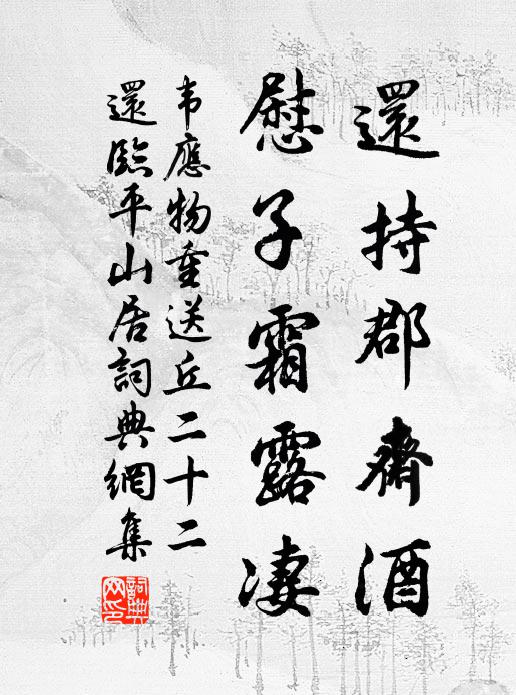 還持郡齋酒
慰子霜露凄
韦應物重送丘二十二
還臨平山居詞典網集